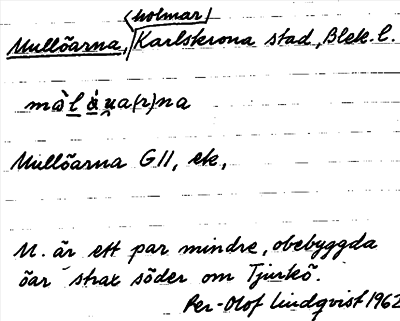 holmar
Mullöarna, Karlskrona stad, Blek. l.
Mullöarna GII, ek,
M. är ett par mindre, obebyggda
öar strax söder om Tjurkö.
Per-Olof Lindqvist 1962